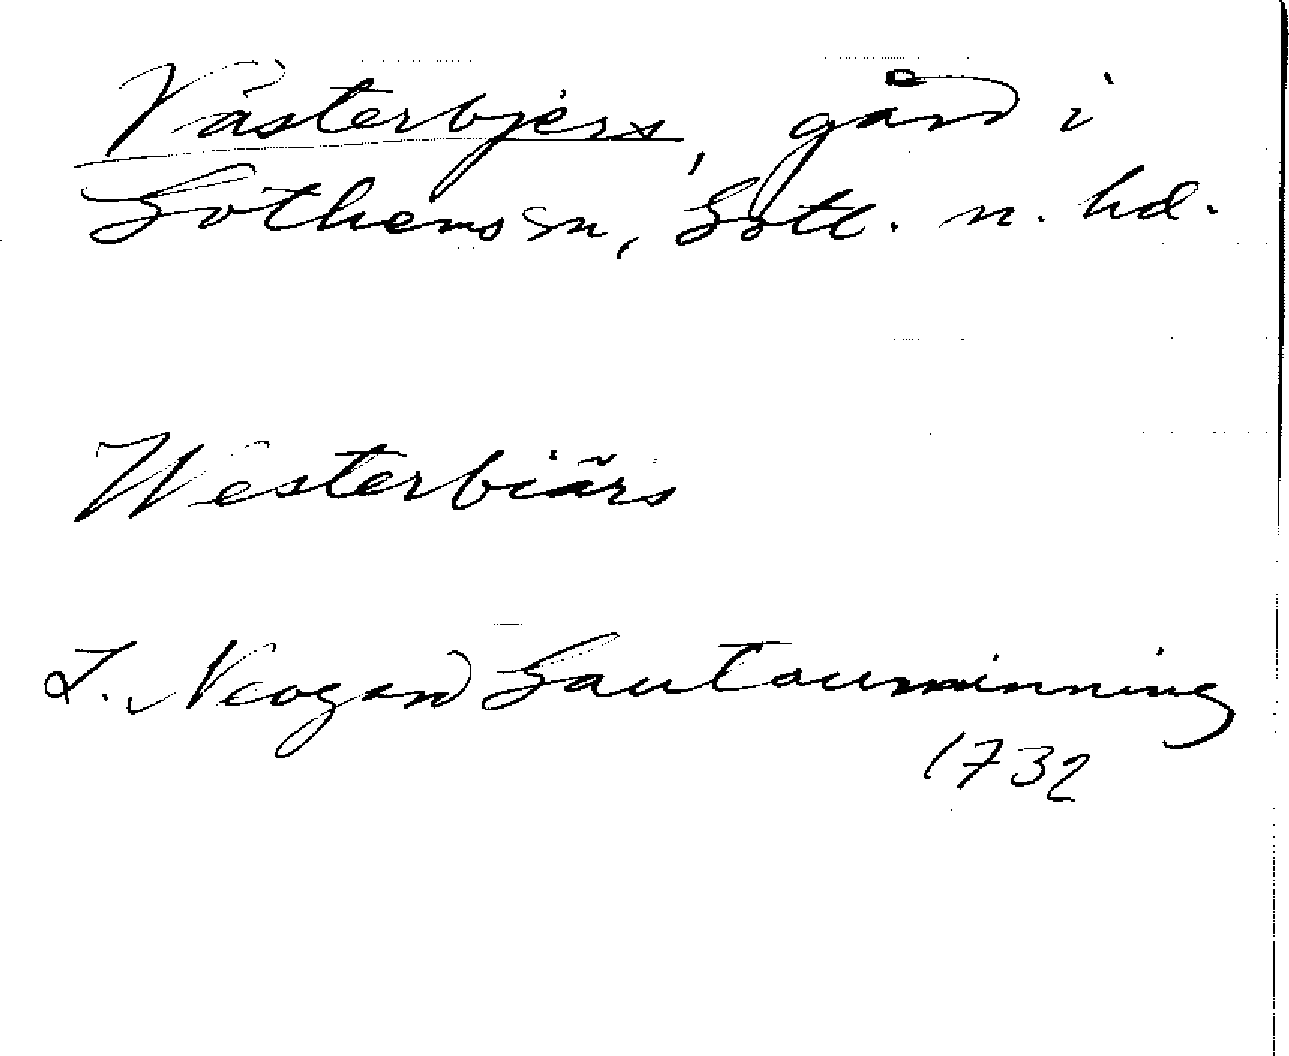 Västerbjers, gård i
Gothems sn, Gotl. n. hd.
Westerbiärs
L. Neogard Gautauminning
1732